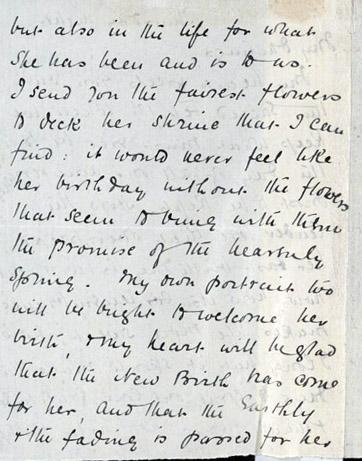 but also in the life for what
she has been and is to us.
I send you the fairest flowers
to deck her shrine that I can
find: it would never feel like
her birthday without the flowers
that seem to bring with them
the promise of the heavenly
Spring. My own portrait too
will be bright to welcome her
birth, & my heart will be glad
that the New Birth has come
for her, and that the Earthly
& the fading is passed for her